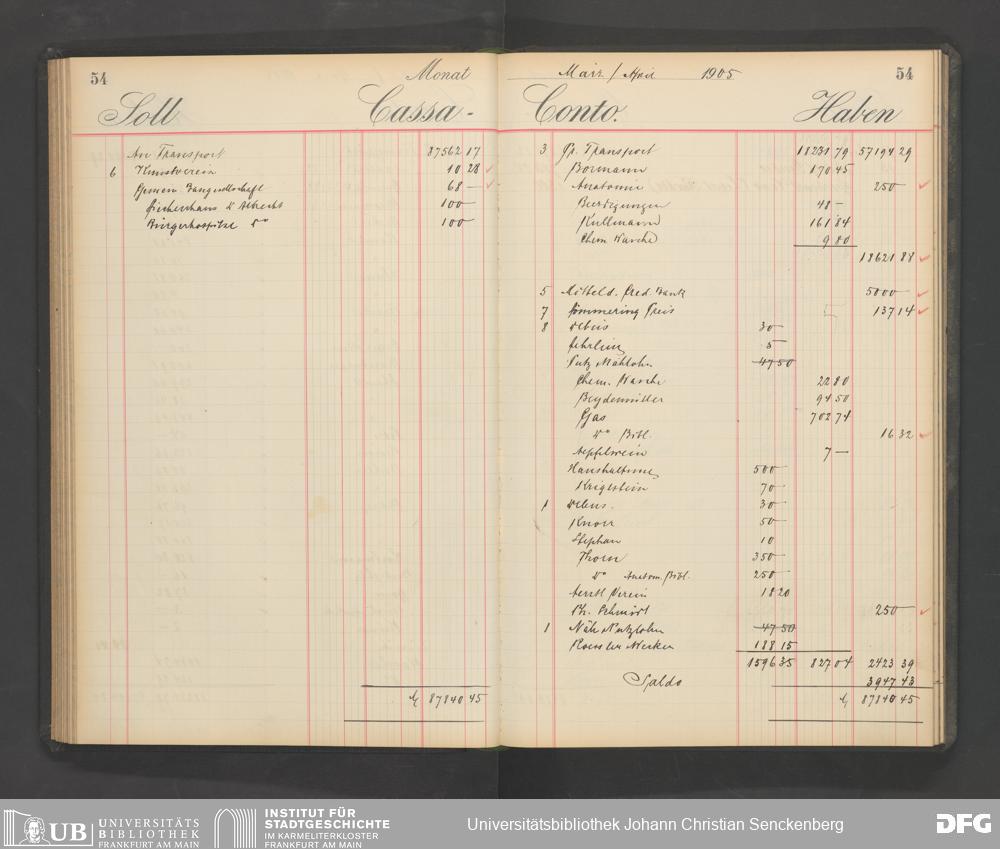 54 Monat
Soll Cassa-
An Transport 87562 17
6 Kunstverein 10 28
Gemein. Baugesellschaft 68 —
Siechenhaus d. Albrecht 100 —
Bürgerhospital do 100 —
87840 45
März / April 1905 54
Conto. Haben
3 Pr. Transport 18231 79 57194 29
Bormann 170 45
Anatomie 250 —
Beerdigungen 48 —
Kullmann 161 84
Chem. Wäsche 9 80
18621 88
5 Mitteld. Cred. Bank 5000 —
7 Sömmering Preis 137 14
8 30 —
5 —
Putz Nählohn 47 50
Chem. Wäsche 22 80
Beydemüller 94 50
Gas 702 74
do Bibl. 16 32
Aepfelwein 7 —
Haushaltung 500 —
70 —
1 30 —
Knorr 50 —
Stephan 10
Thorn 350 —
do Anatom. Bibl. 250 —
Aerztl. Verein 18 20
Ph. Schmidt 250 —
1 Näh & Putzlohn 47 50
188 15
1596 35 827 04 2423 39
Saldo 3947 43
87840 45
UB UNIVERSITÄTS
BIBLIOTHEK
FRANKFURT AM MAIN
INSTITUT FÜR
STADTGESCHICHTE
IM KARMELITERKLOSTER
FRANKFURT AM MAIN
Universitätsbibliothek Johann Christian Senckenberg
DFG